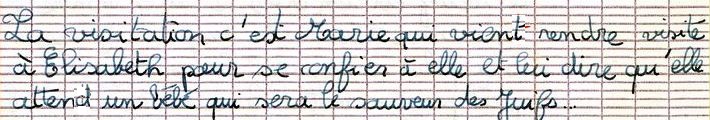 La visitation c'est Marie qui vient rendre visite
à Elisabeth pour se confier à elle et lui dire qu'elle
attend un bébé qui sera le sauveur des Juifs...